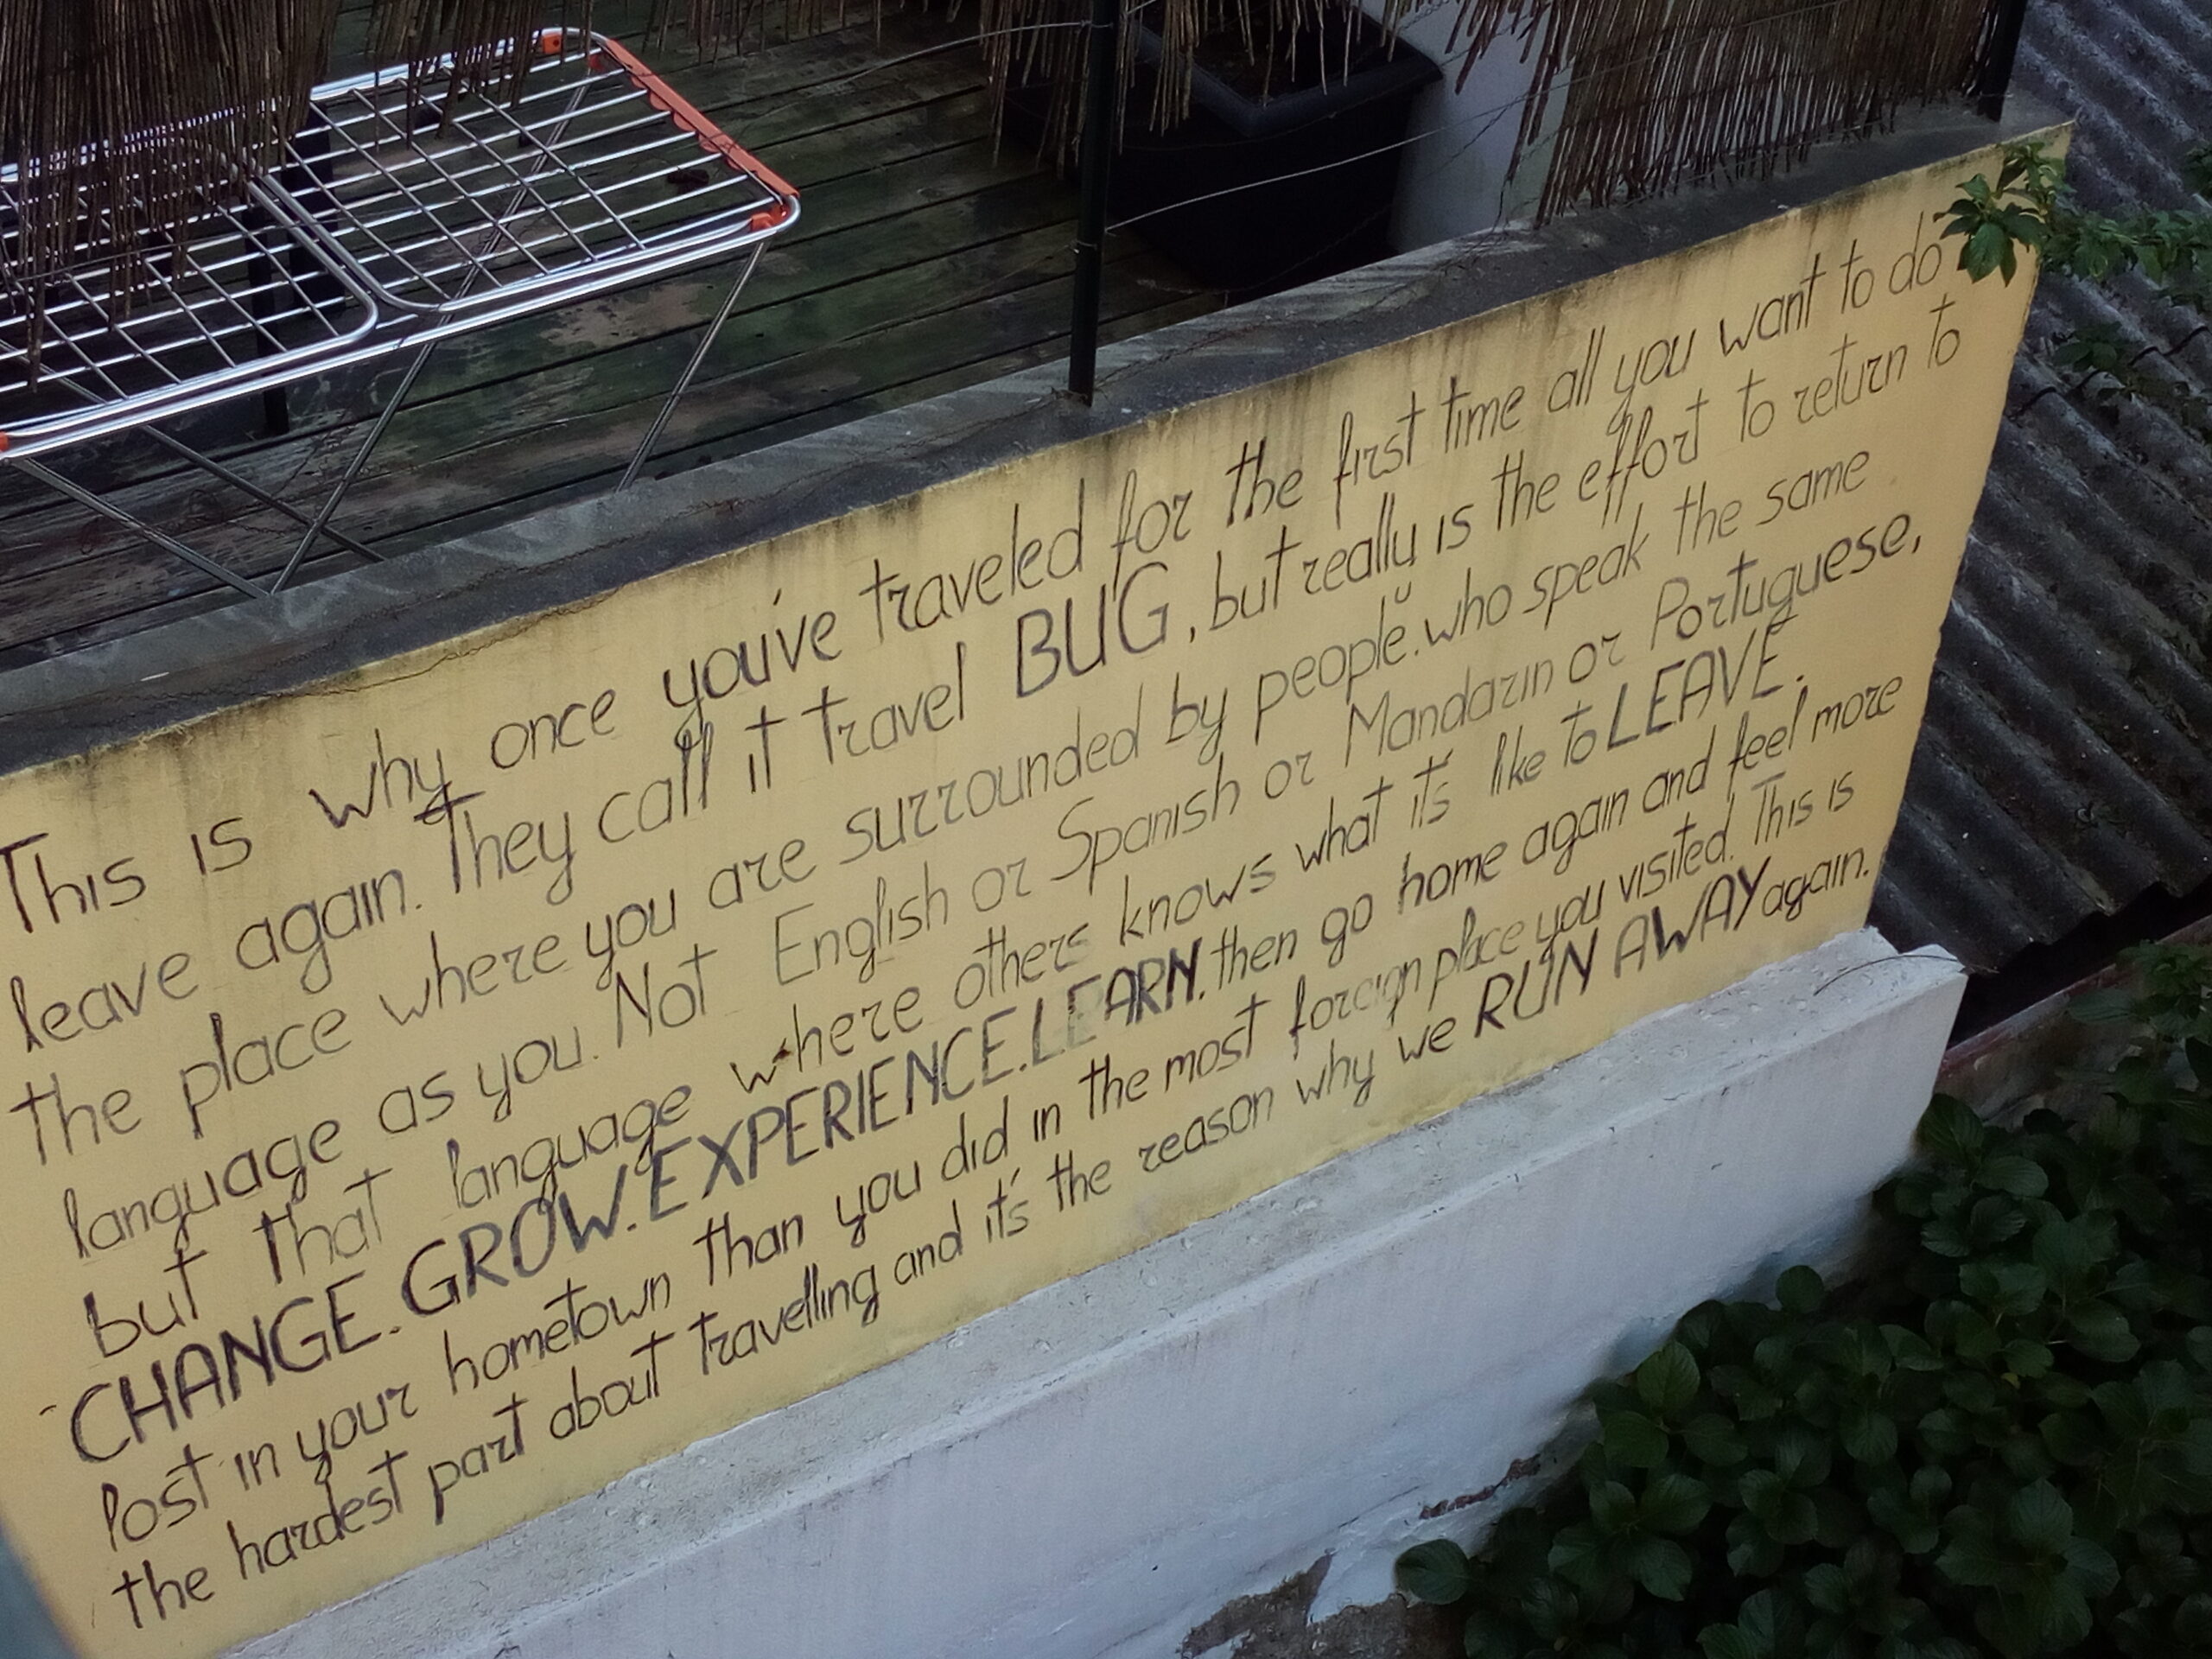 This is why once you've traveled for the first time all you want to do
leave again. They call it travel BUG, but really is the effort to return to
the place where you are surrounded by people who speak the same
language as you. Not English or Spanish or Mandarin or Portuguese,
but that language where others knows what it's like to LEAVE.
CHANGE. GROW. EXPERIENCE. LEARN. then go home again and feel more
lost in your hometown than you did in the most foreign place you visited. This is
the hardest part about travelling and it's the reason why we RUN AWAY again.